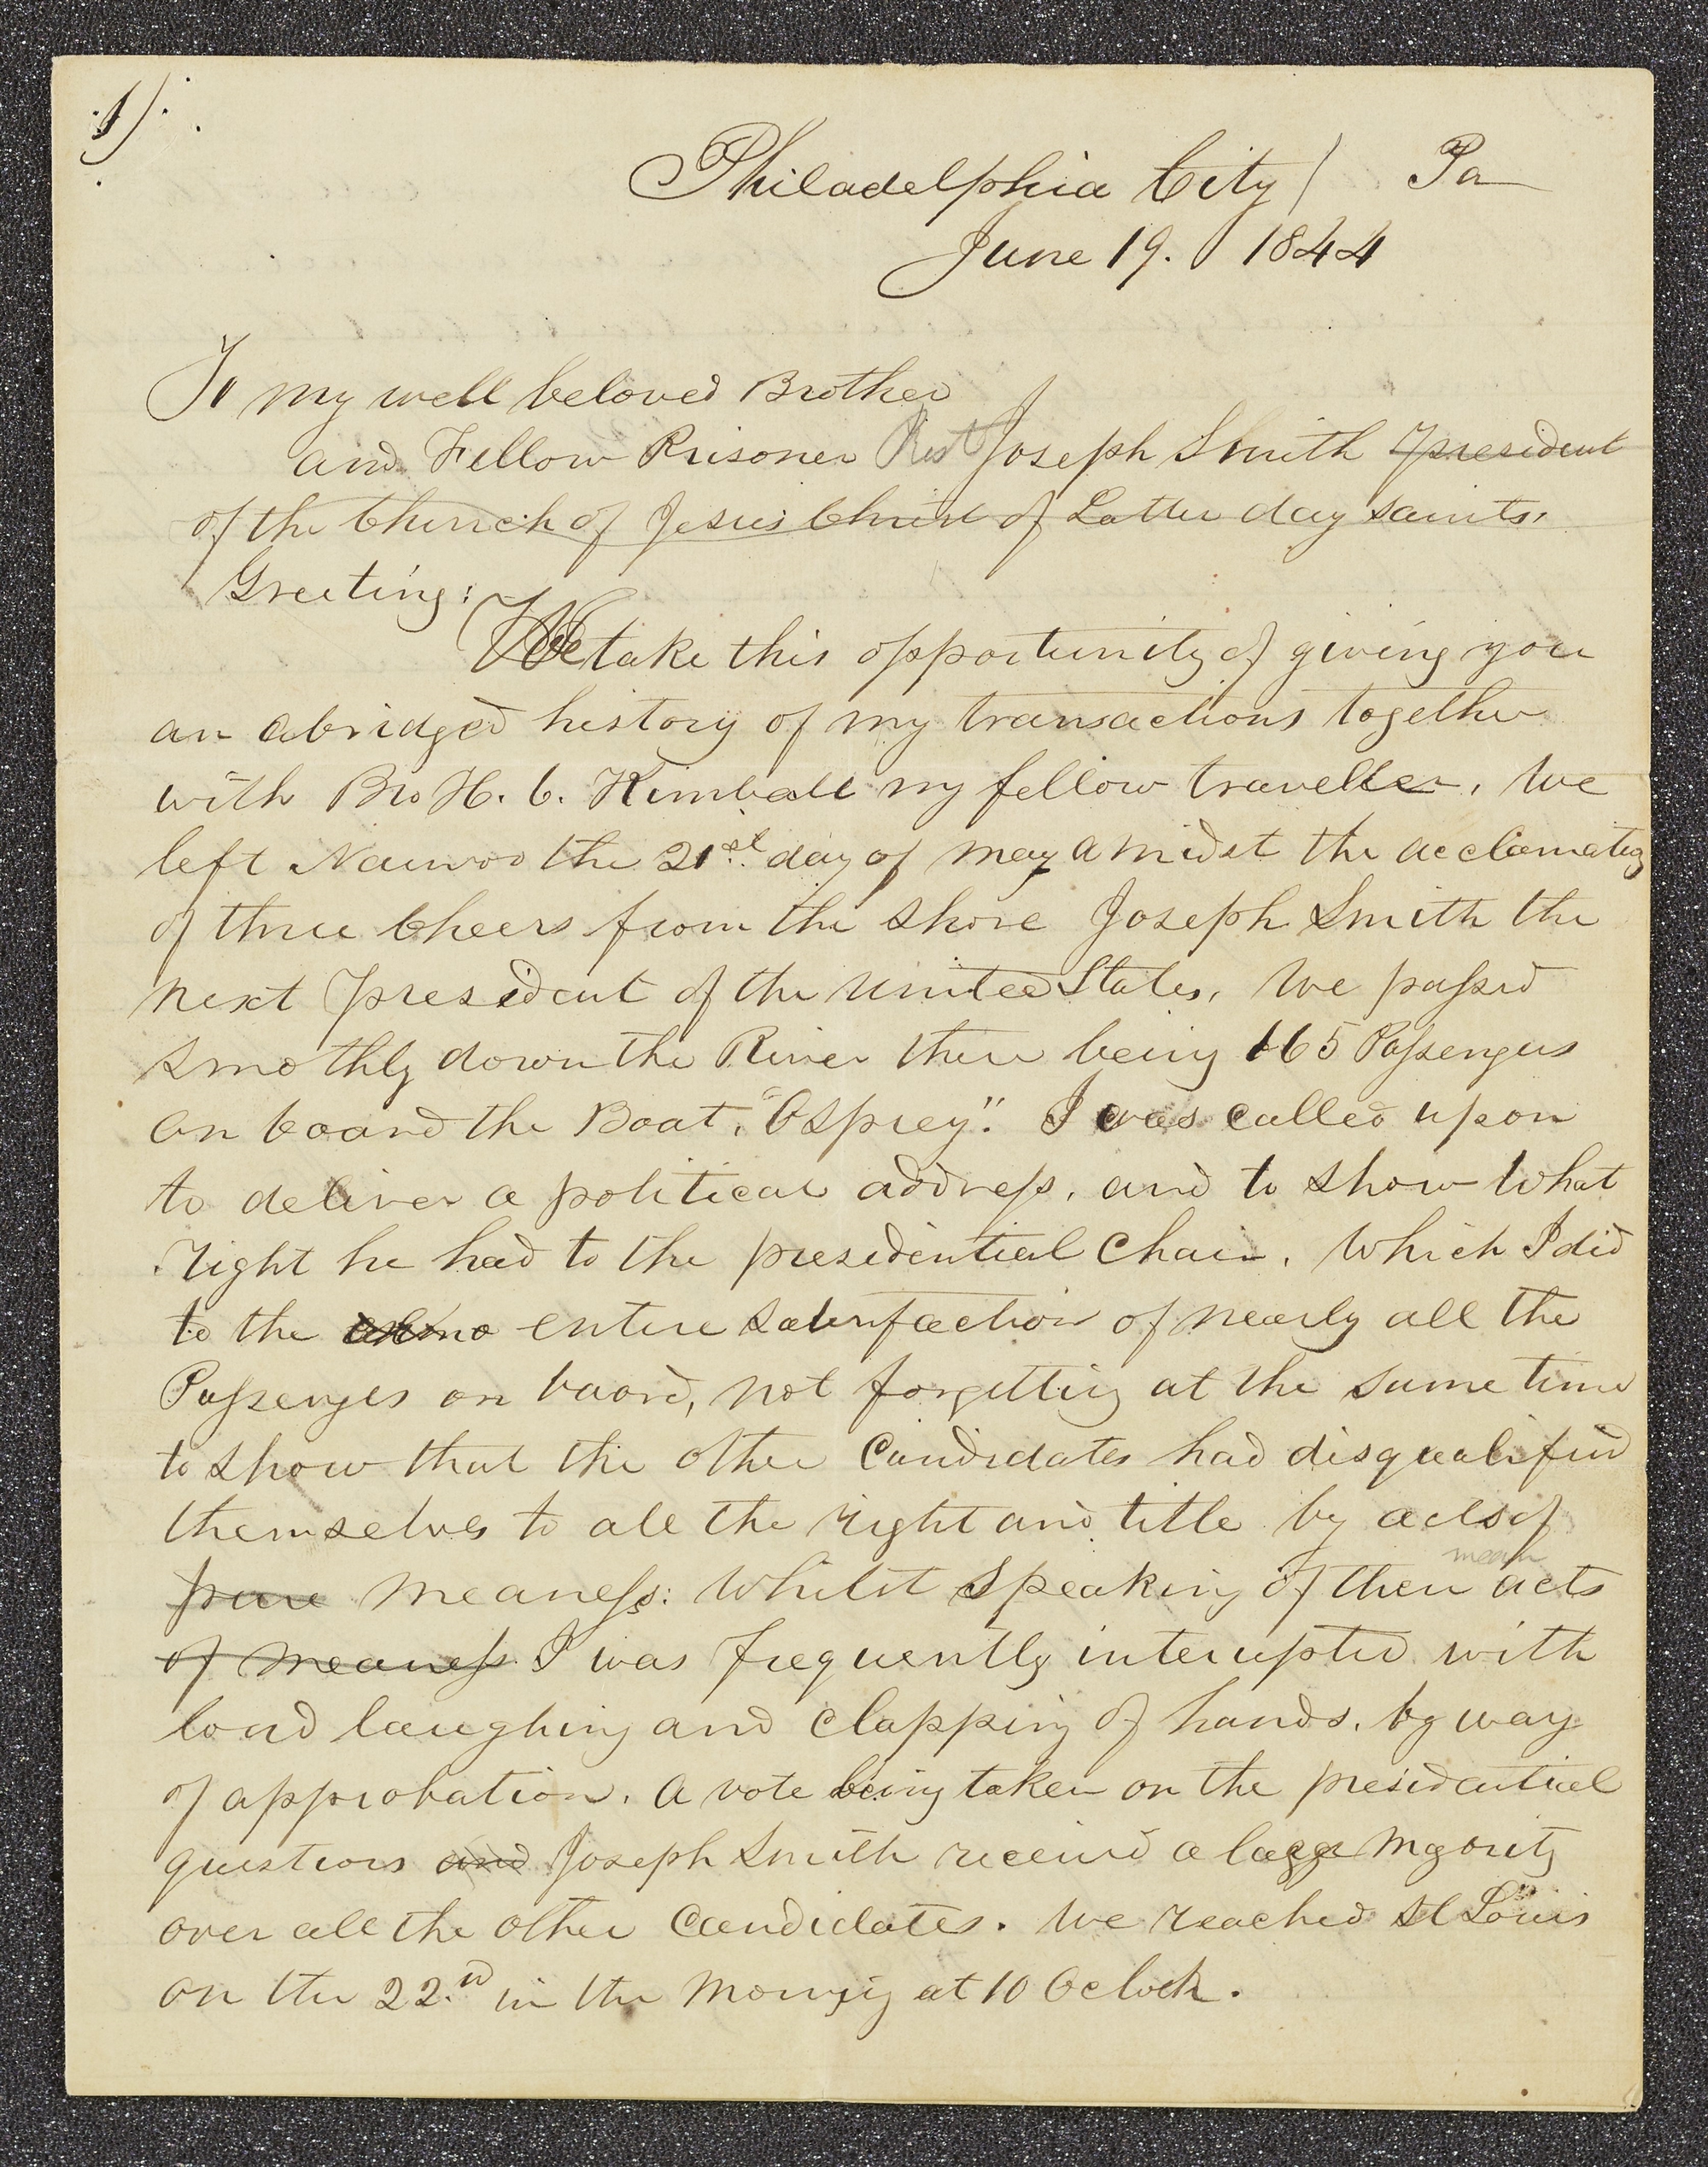 1)
Philadelphia City) Pa
June 19. 1844
To my well beloved Brother
and Fellow Prisoner Joseph Smith president
of the Church of Jesus Christ of Latter day saints,
Greeting:
We take this opportunity of giving you
an abridged history of my transactions together
with Bro H. C. Kimball my fellow traveller. We
left Nauvoo the 21st day of may amidst the acclamatig
of three Cheers from the shore Joseph Smith the
next president of the united States, We passed
smothly down the River there being 165 Passengers
on board the Boat, "Osprey." I was called upon
to deliver a political address, and to show what
right he had to the presidential Chair. Which I did
to the entire satisfaction of nearly all the
Passenges on baord, not forgetting at the same time
to show that the other Candidates had disqualified
themselves to all the right and title by acts of
pure meaness: Whilst Speaking of their mean acts
of meaness I was frequently interupted with
loud laughing and clapping of hands, by way
of approbation. A vote being taken on the presidential
question and Joseph Smith received a large Majority
over all the other Candidates. We reached St Louis
on the 22nd in the Morning at 10 Oclock.